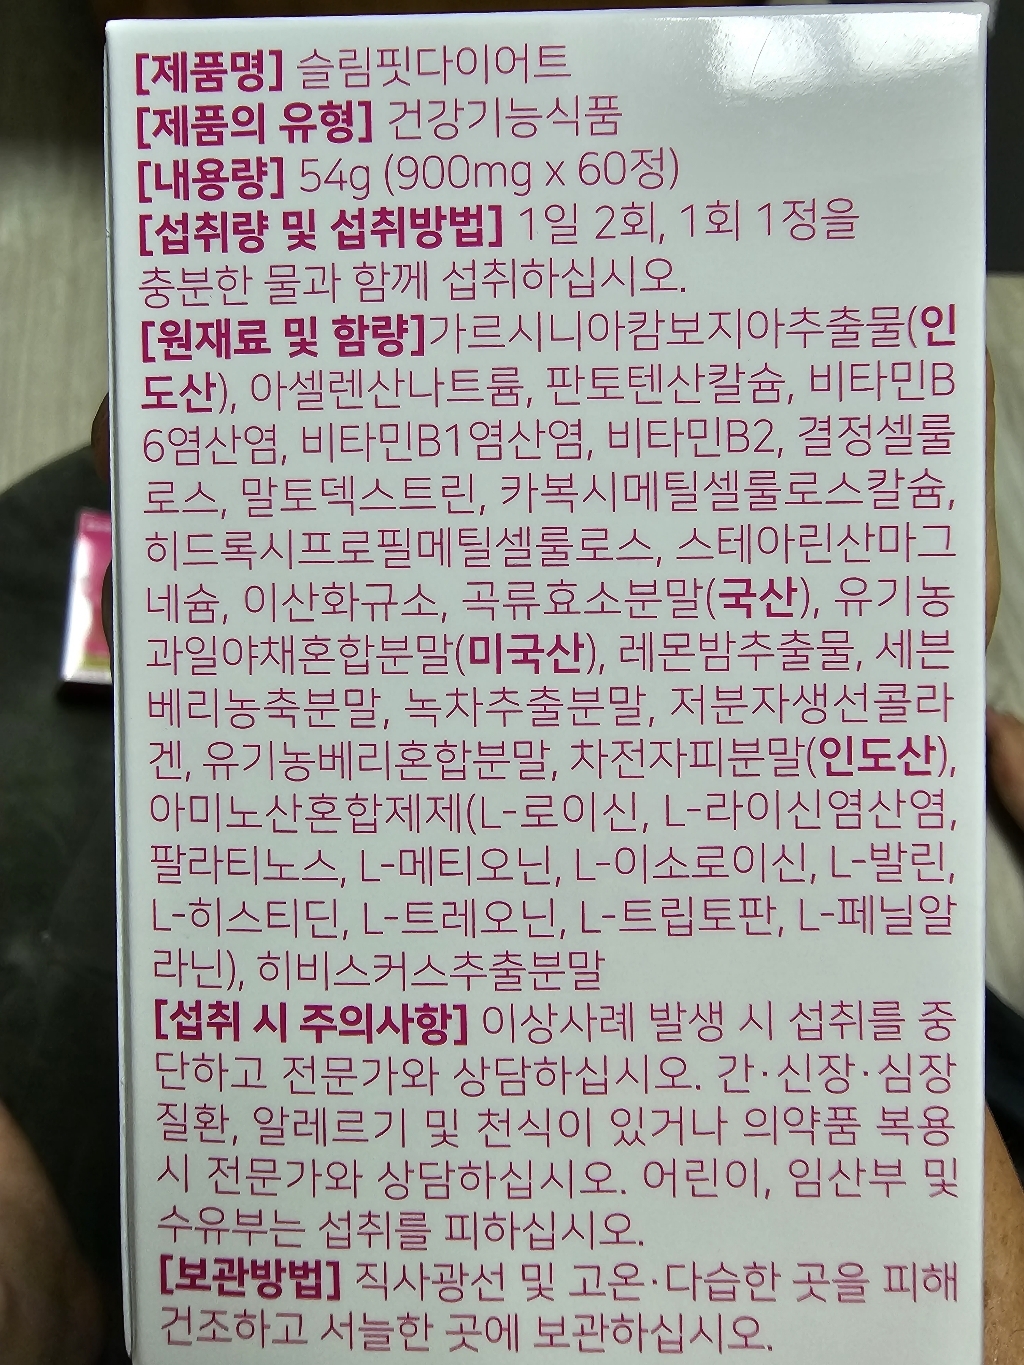 [제품명] 슬림핏다이어트
[제품의 유형] 건강기능식품
[내용량] 54g (900mg x 60정)
[섭취량 및 섭취방법] 1일 2회, 1회 1정을
충분한 물과 함께 섭취하십시오.
[원재료 및 함량]가르시니아캄보지아추출물(인
도산), 아셀렌산나트륨, 판토텐산칼슘, 비타민B
6염산염, 비타민B1염산염, 비타민B2, 결정셀룰
로스, 말토덱스트린, 카복시메틸셀룰로스칼슘,
히드록시프로필메틸셀룰로스, 스테아린산마그
네슘, 이산화규소, 곡류효소분말(국산), 유기농
과일야채혼합분말(미국산), 레몬밤추출물, 세븐
베리농축분말, 녹차추출분말, 저분자생선콜라
겐, 유기농베리혼합분말, 차전자피분말(인도산),
아미노산혼합제제(L-로이신, L-라이신염산염,
팔라티노스, L-메티오닌, L-이소로이신, L-발린,
L-히스티딘, L-트레오닌, L-트립토판, L-페닐알
라닌), 히비스커스추출분말
[섭취 시 주의사항] 이상사례 발생 시 섭취를 중
단하고 전문가와 상담하십시오. 간·신장·심장
질환, 알레르기 및 천식이 있거나 의약품 복용
시 전문가와 상담하십시오. 어린이, 임산부 및
수유부는 섭취를 피하십시오.
[보관방법] 직사광선 및 고온·다습한 곳을 피해
건조하고 서늘한 곳에 보관하십시오.